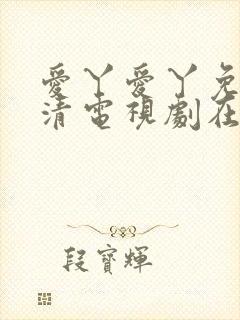 愛丫愛丫免
清電視劇在
段寶輝